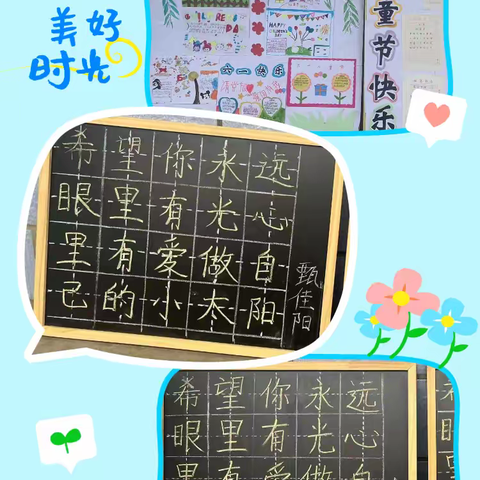 美好
时光
六一快乐
童节快乐
希望你永远
眼里有光心
里有爱做自
己的小太阳
甄佳阳
希望你永远
眼里有光心
里有爱做自